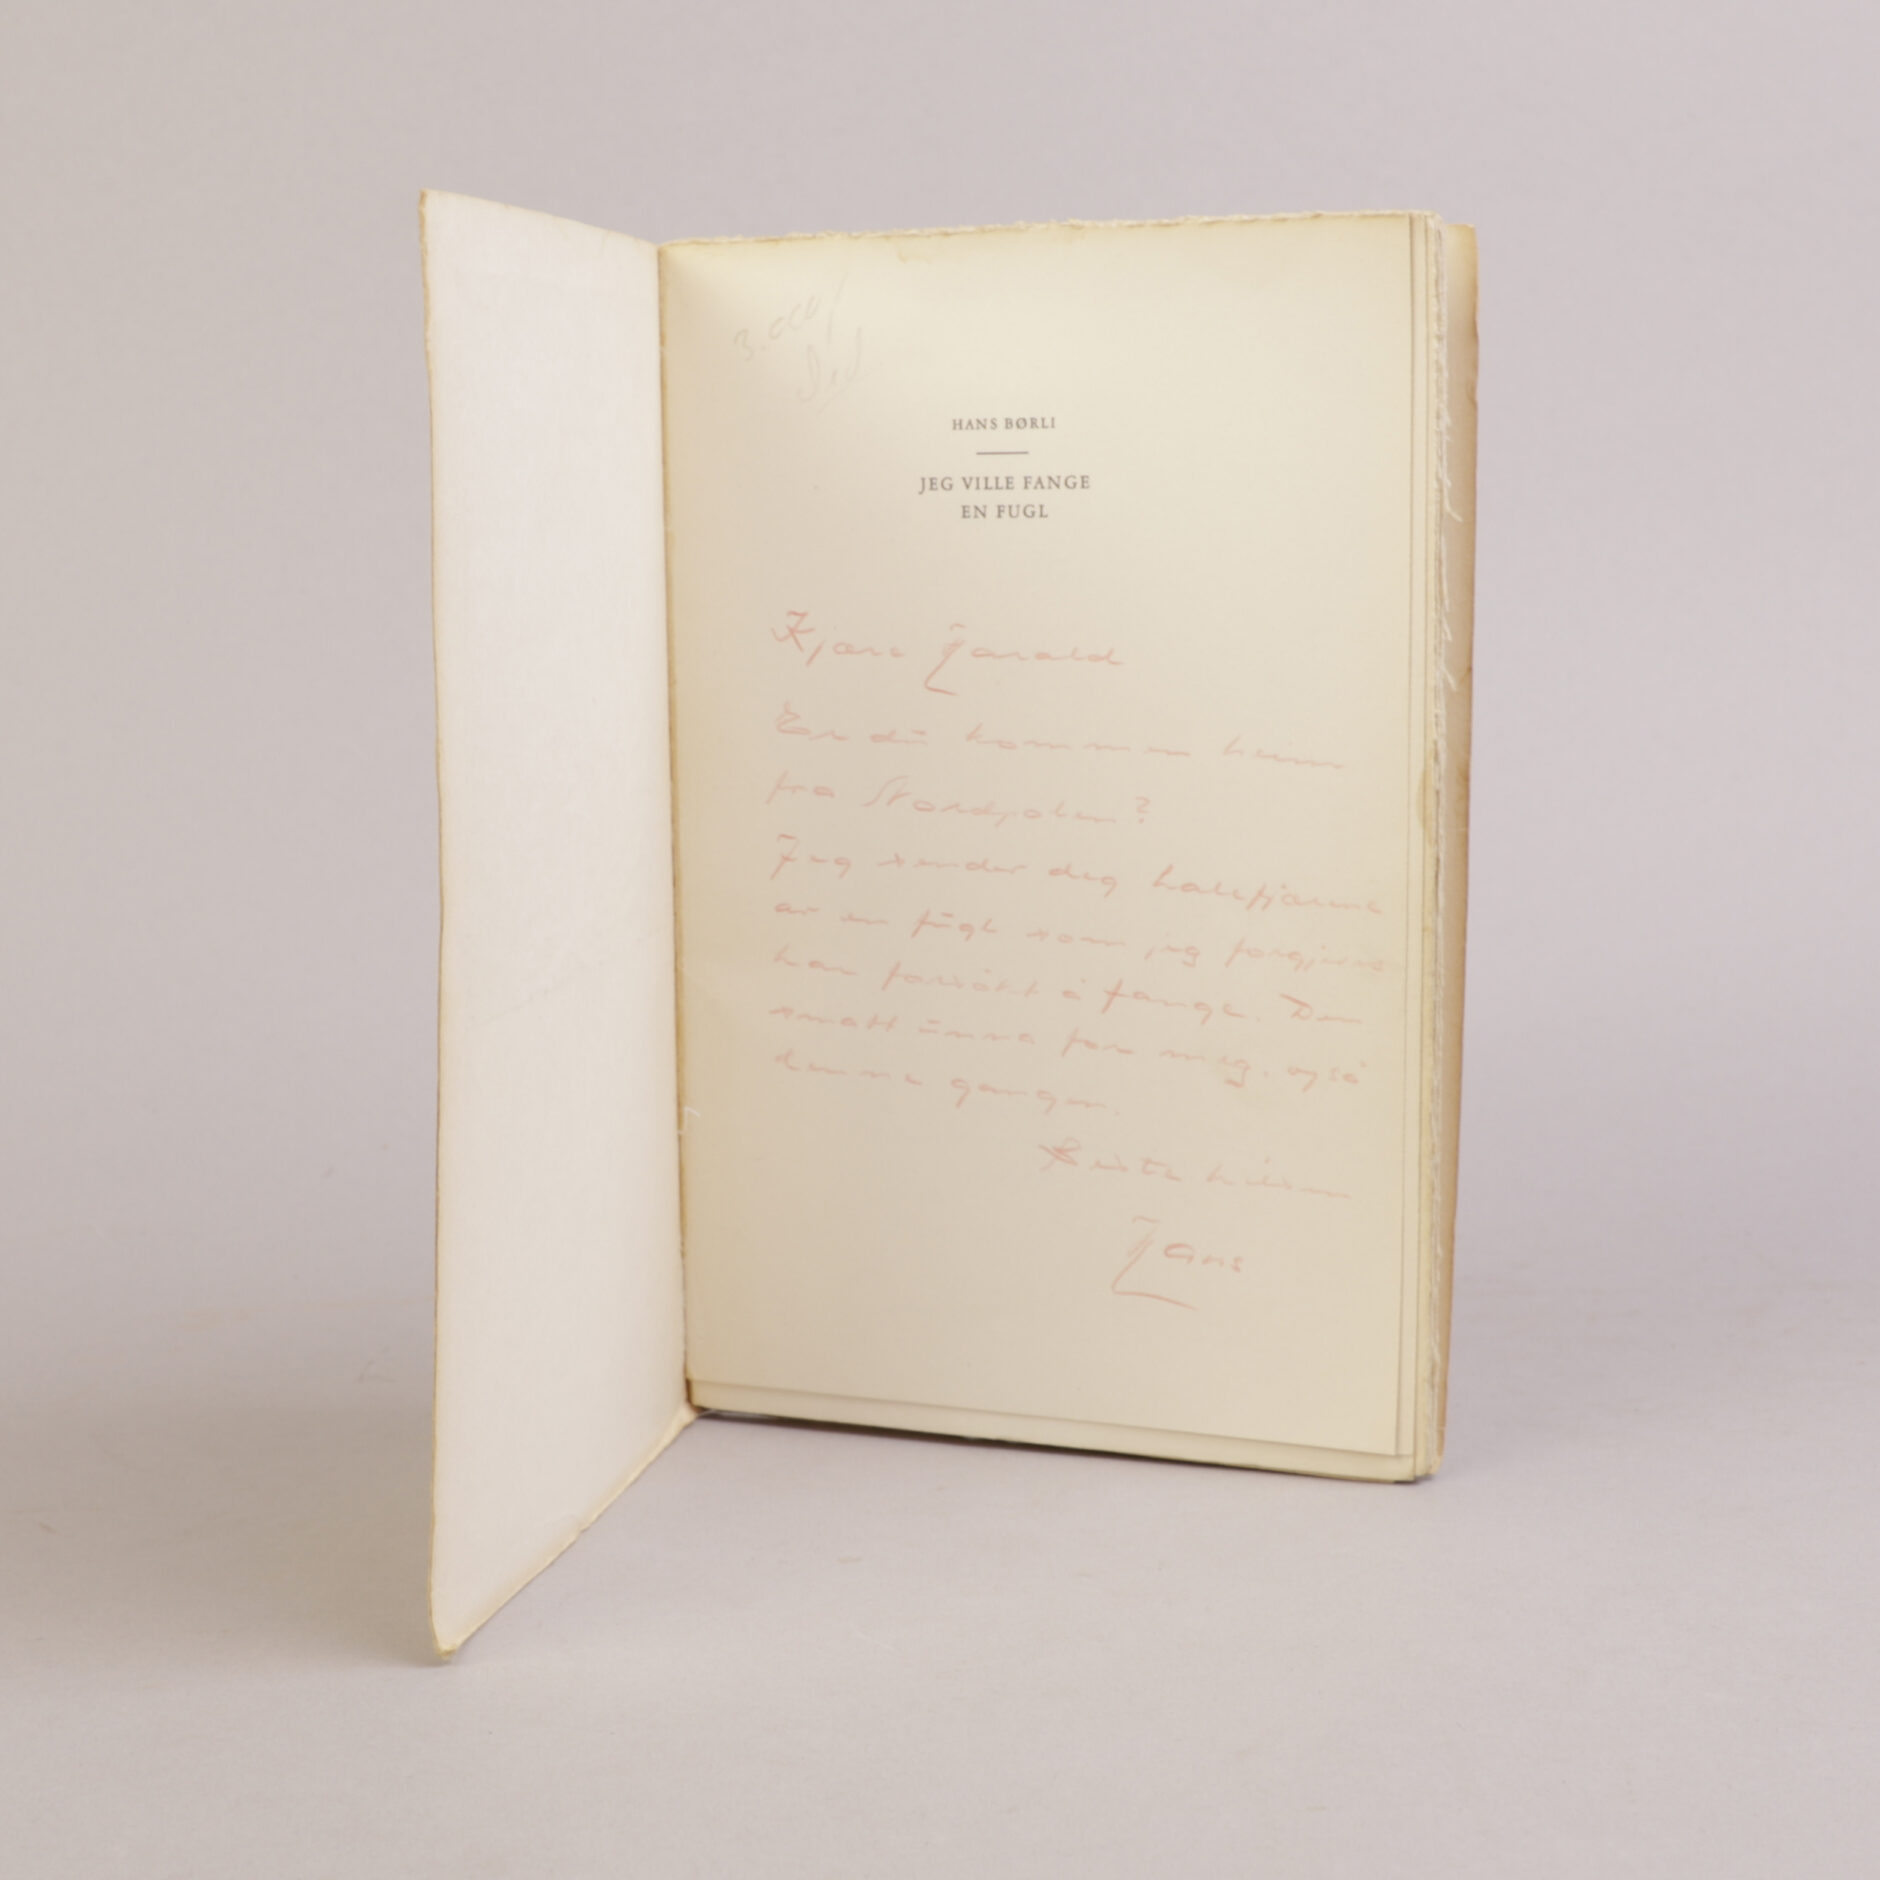 3.000/
Ded
HANS BØRLI
JEG VILLE FANGE
EN FUGL
Kjære Harald
Er du kommen heim
fra Nordpolen?
Jeg sender deg halefjærene
av en fugl som jeg forgjeves
har forsøkt å fange. Den
smatt unna for meg, også
denne gangen.
Beste hilsen
Hans